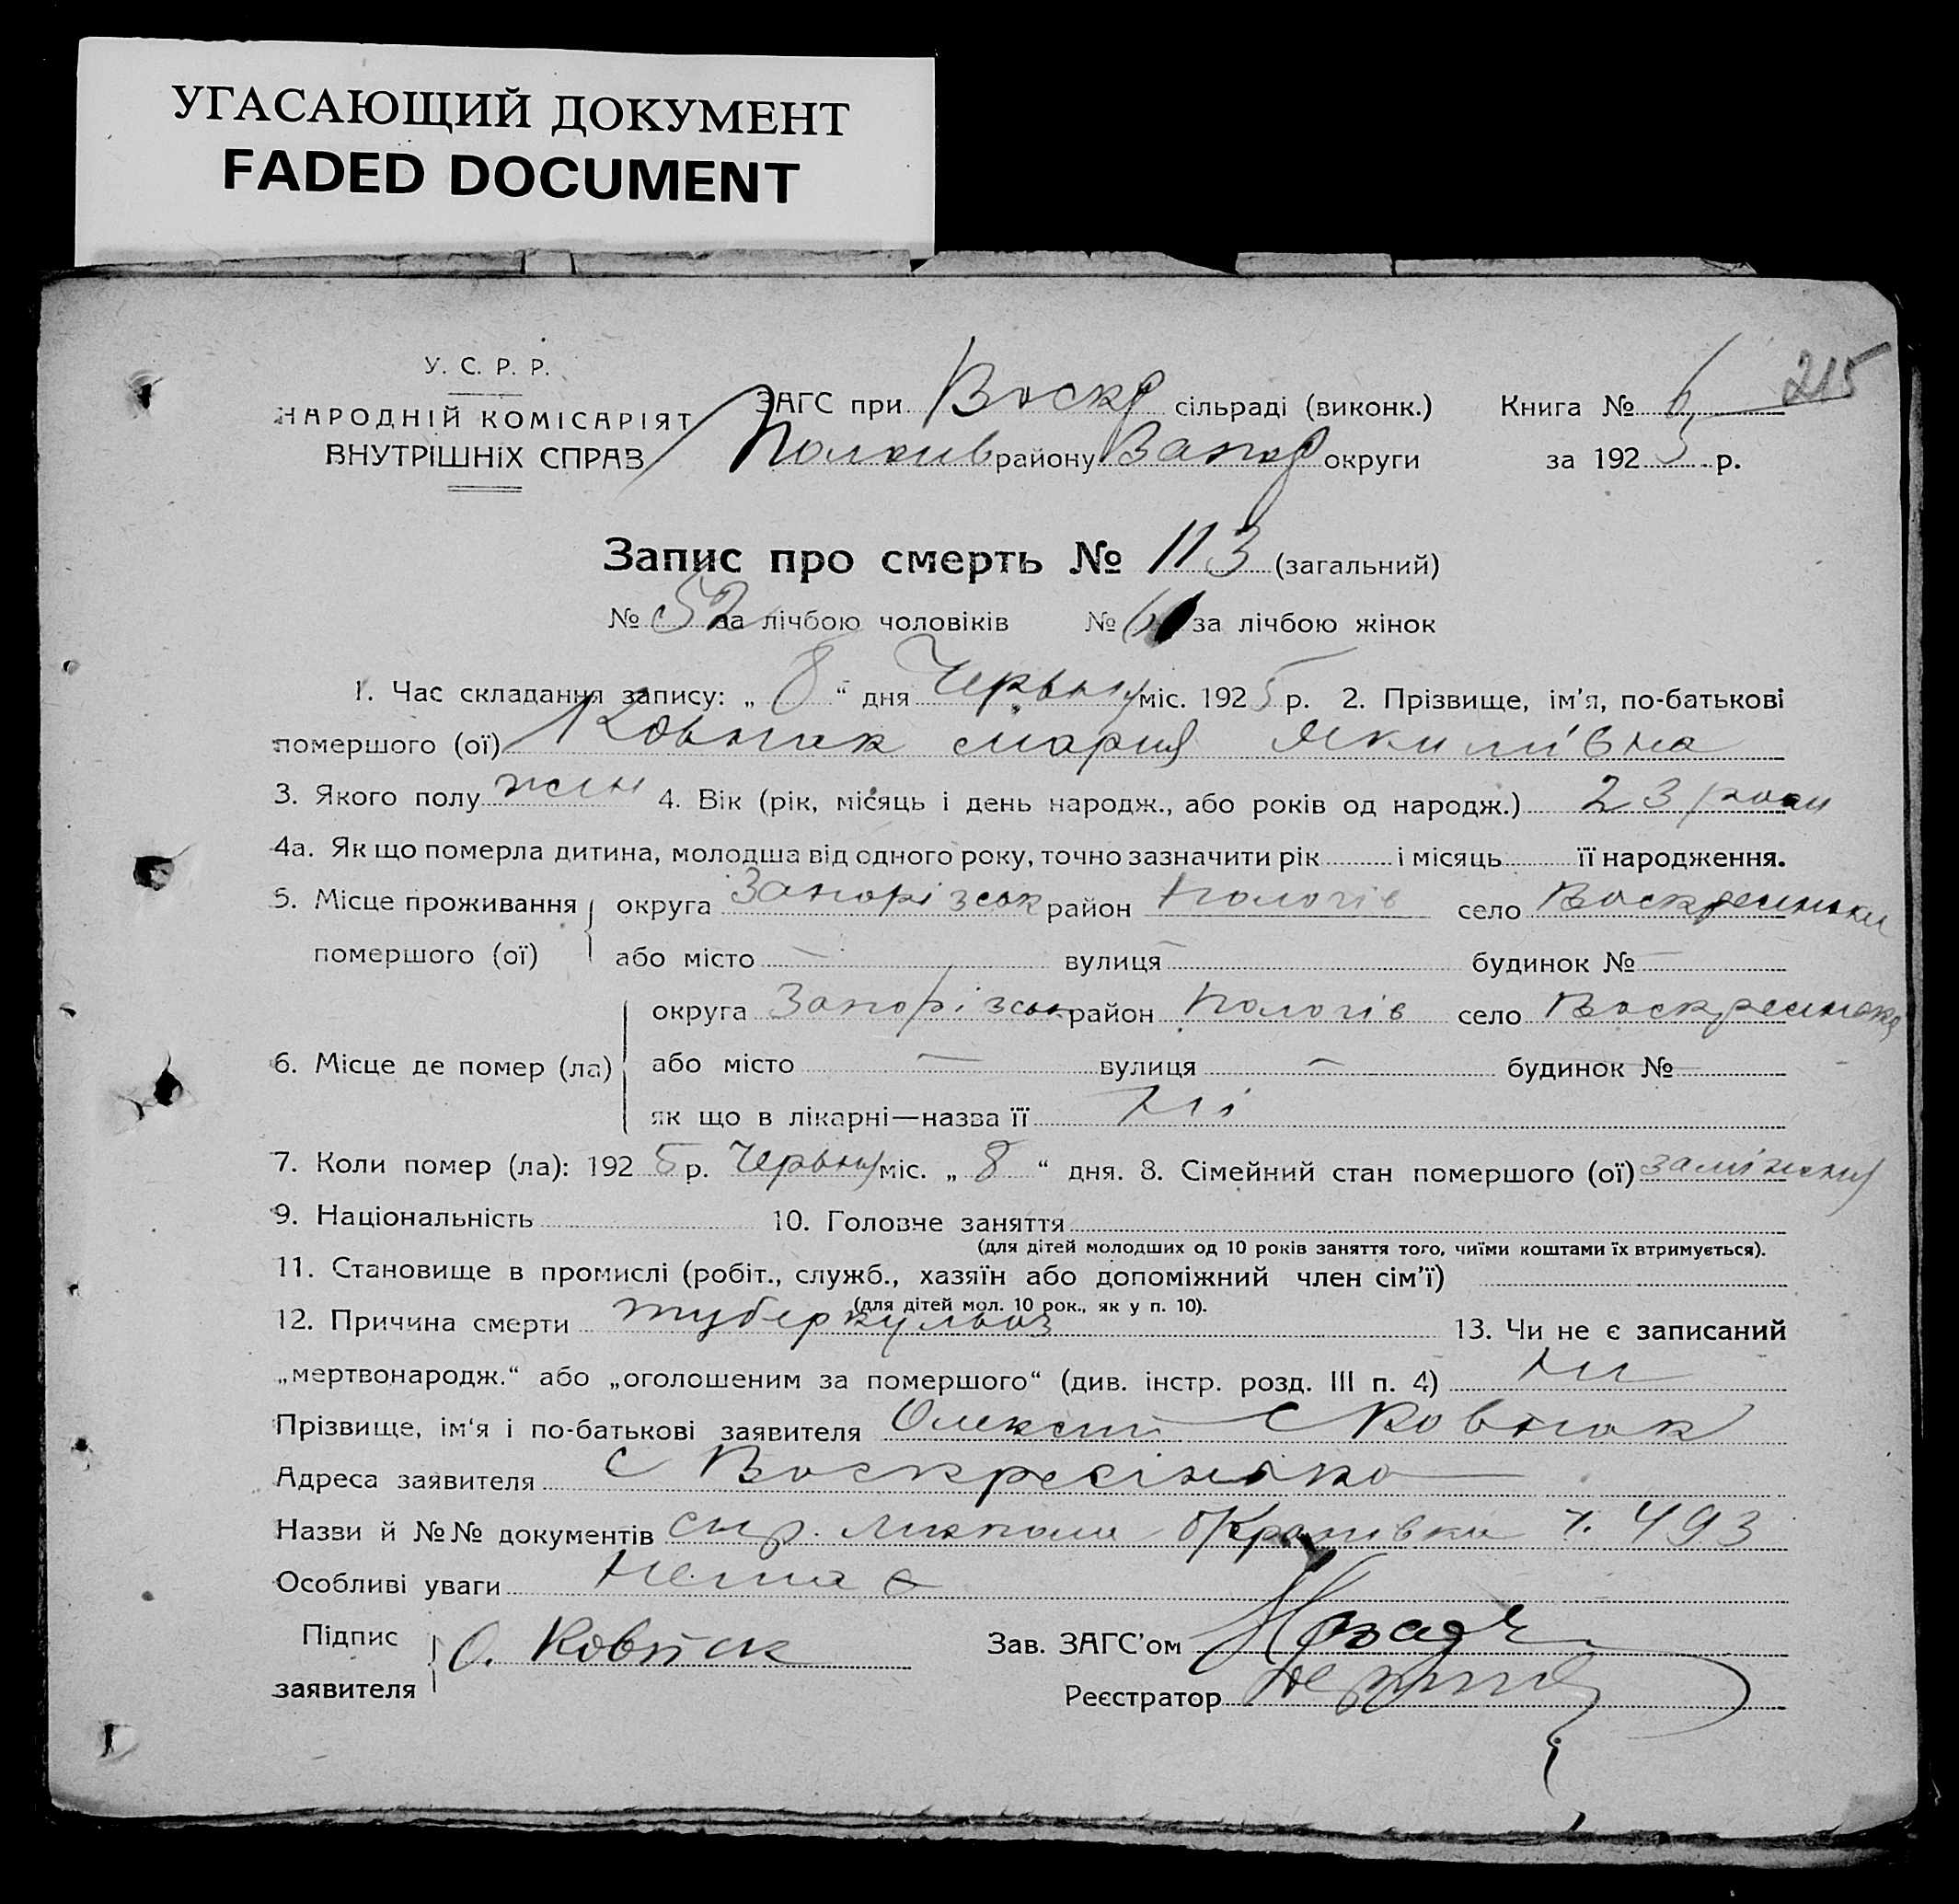 УГАСАЮЩИЙ ДОКУМЕНТ
FADED DOCUMENT
215
У. С. Р. Р.
НАРОДНІЙ КОМІСАРІЯТ
ВНУТРІШНІХ СПРАВ
ЗАГС при Воскр сільраді (виконк.) Книга № 6
Пологив району Запор округи за 1925 р.
Запис про смерть № 113 (загальний)
№ 52 за лічбою чоловіків № 61 за лічбою жінок
1. Час складання запису: „ 8 “ дня Червня міс. 1925 р. 2. Прізвище, ім'я, по-батькові
помершого (ої) Ковпак Мария Якимівна
3. Якого полу жін 4. Вік (рік, місяць і день народж., або років од народж.) 23 роки
4а. Як що померла дитина, молодша від одного року, точно зазначити рік і місяць її народження.
5. Місце проживання округа Запорізськ район Пологів село
помершого (ої) або місто — вулиця — будинок № —
округа Запорізськ район Пологів село
6. Місце де помер (ла) або місто — вулиця — будинок № —
як що в лікарні—назва її Ні
7. Коли помер (ла): 1925 р. Червня міс. „ 8 “ дня. 8. Сімейний стан помершого (ої) заміжня
9. Національність 10. Головне заняття
(для дітей молодших од 10 років заняття того, чиїми коштами їх втримується).
11. Становище в промислі (робіт., служб., хазяїн або допоміжний член сім'ї)
(для дітей мол. 10 рок., як у п. 10).
12. Причина смерти туберкульоз 13. Чи не є записаний
„мертвонародж.“ або „оголошеним за помершого“ (див. інстр. розд. III п. 4) Ни
Прізвище, ім'я і по-батькові заявителя Олексій С Ковпак
Адреса заявителя С Воскресінька
Назви й №№ документів ч. 493
Особливі уваги Нема є
Підпис О. Ковпак Зав. ЗАГС'ом
заявителя Реєстратор